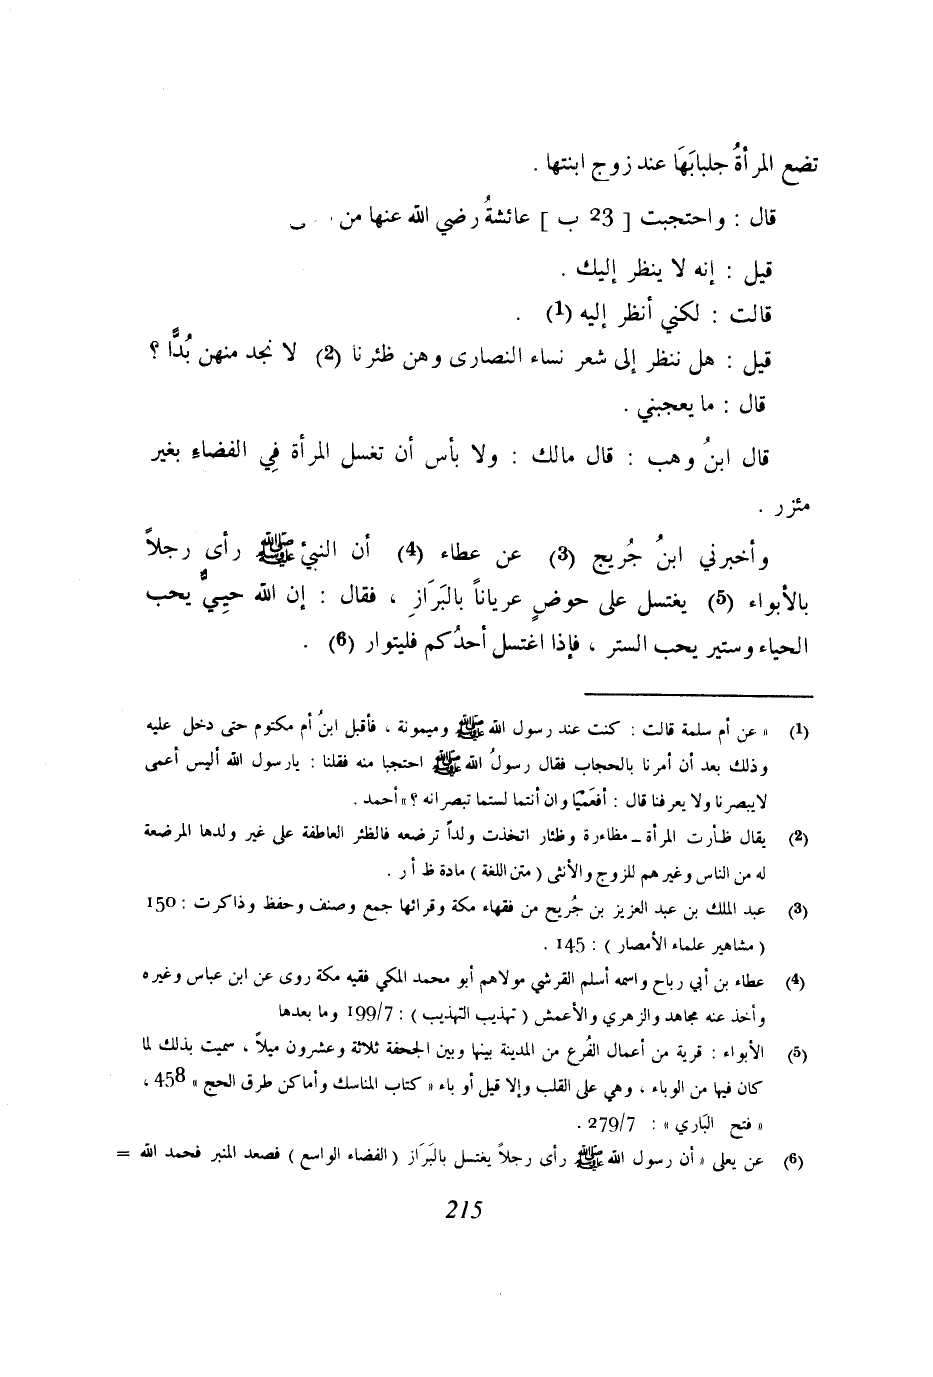 تضع المرأةُ جلبابَهَا عند زوج ابنتها .
قال : واحتجبت [ 23 ب ] عائشةُ رضي الله عنها من
قيل : إنه لا ينظر إليك .
قالت : لكني أنظر إليه (1) .
قيل : هل ننظر إلى شعر نساء النصارى وهن ظئرنا (2) لا نجد منهن بُدًّا ؟
قال : ما يعجبني .
قال ابنُ وهب : قال مالك : ولا بأس أن تغسل المرأة فِي الفضاء بغير
مئزر .
وأخبرني ابنُ جُريج (3) عن عطاء (4) أن النبيَّ ﷺ رأى رجلاً
بالأبواء (5) يغتسل على حوضٍ عرياناً بالبَرَازِ ، فقال : إن الله حيِيٌّ يحب
الحياء وستير يحب الستر ، فإذا اغتسل أحدُكم فليتوار (6) .
(1) « عن أم سلمة قالت : كنت عند رسول الله ﷺ وميمونة ، فأقبل ابنُ أم مكتوم حتى دخل عليه
وذلك بعد أن أمرنا بالحجاب فقال رسولُ الله ﷺ احتجبا منه فقلنا : يارسول الله أليس أعمى
لايبصرنا ولا يعرفنا قال : أفعَمْيَا وان أنتما لستما تبصرانه ؟ » أحمد .
(2) يقال ظأرت المرأة ـ مظاءرة وظئار اتخذت ولداً ترضعه فالظئر العاطفة على غير ولدها المرضعة
له من الناس وغيرهم للزوج والأنثى ( متن اللغة ) مادة ظ أ ر .
(3) عبد الملك بن عبد العزيز بن جُريح من فقهاء مكة وقرائها جمع وصنف وحفظ وذاكرت : 150
( مشاهير علماء الأمصار ) : 145 .
(4) عطاء بن أبي رباح واسمه أسلم القرشي مولاهم أبو محمد المكي فقيه مكة روى عن ابن عباس وغيره
وأخذ عنه مجاهد والزهري والأعمش ( تهذيب التهذيب ) : 199/7 وما بعدها
(5) الأبواء : قرية من أعمال الفُرع من المدينة بينها وبين الجحفة ثلاثة وعشرون ميلاً ، سميت بذلك لما
كان فيها من الوباء ، وهي على القلب وإلا قيل أو باء « كتاب المناسك وأماكن طرق الحج » 458 ،
« فتح البَاري » : 279/7 .
(6) عن يعلى « أن رسول الله ﷺ رأى رجلاً يغتسل بالبَرَاز ( الفضاء الواسع ) فصعد المنبر فحمد الله =
215